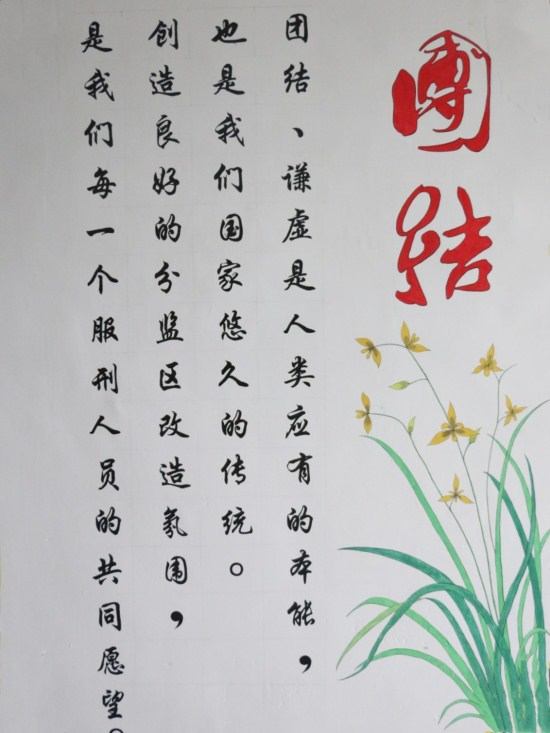 團结
团结、谦虚是人类应有的本能，
也是我们国家悠久的传统。
创造良好的分监区改造氛围，
是我们每一个服刑人员的共同愿望。